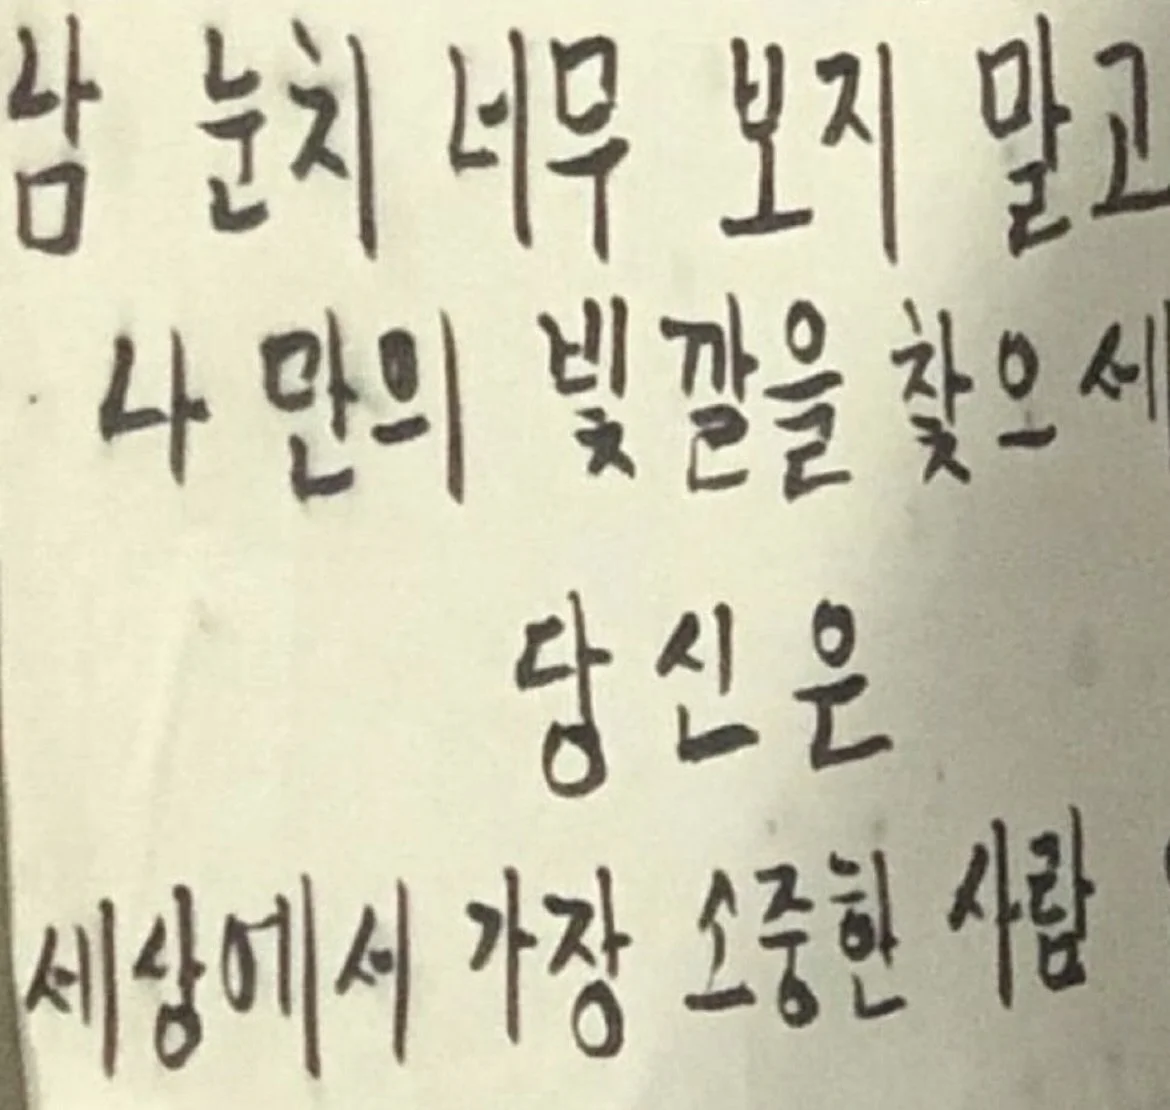 남 눈치 너무 보지 말고
나만의 빛깔을 찾으세
당신은
세상에서 가장 소중한 사람